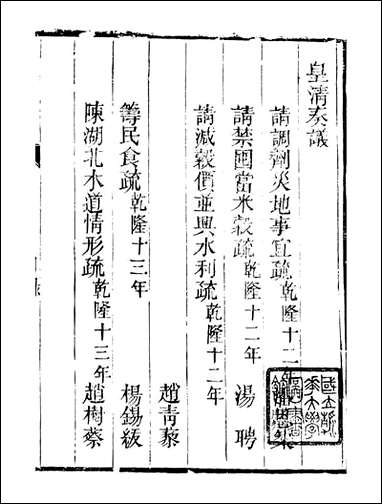 皇清奏議
請調劑災地事宜疏乾隆十二年
請禁囤當米穀疏乾隆十二年 湯聘
請減穀價並興水利疏乾隆十二年
趙青藜
籌民食疏乾隆十三年 楊錫紱
陳湖北水道情形疏乾隆十三年趙樹蔡